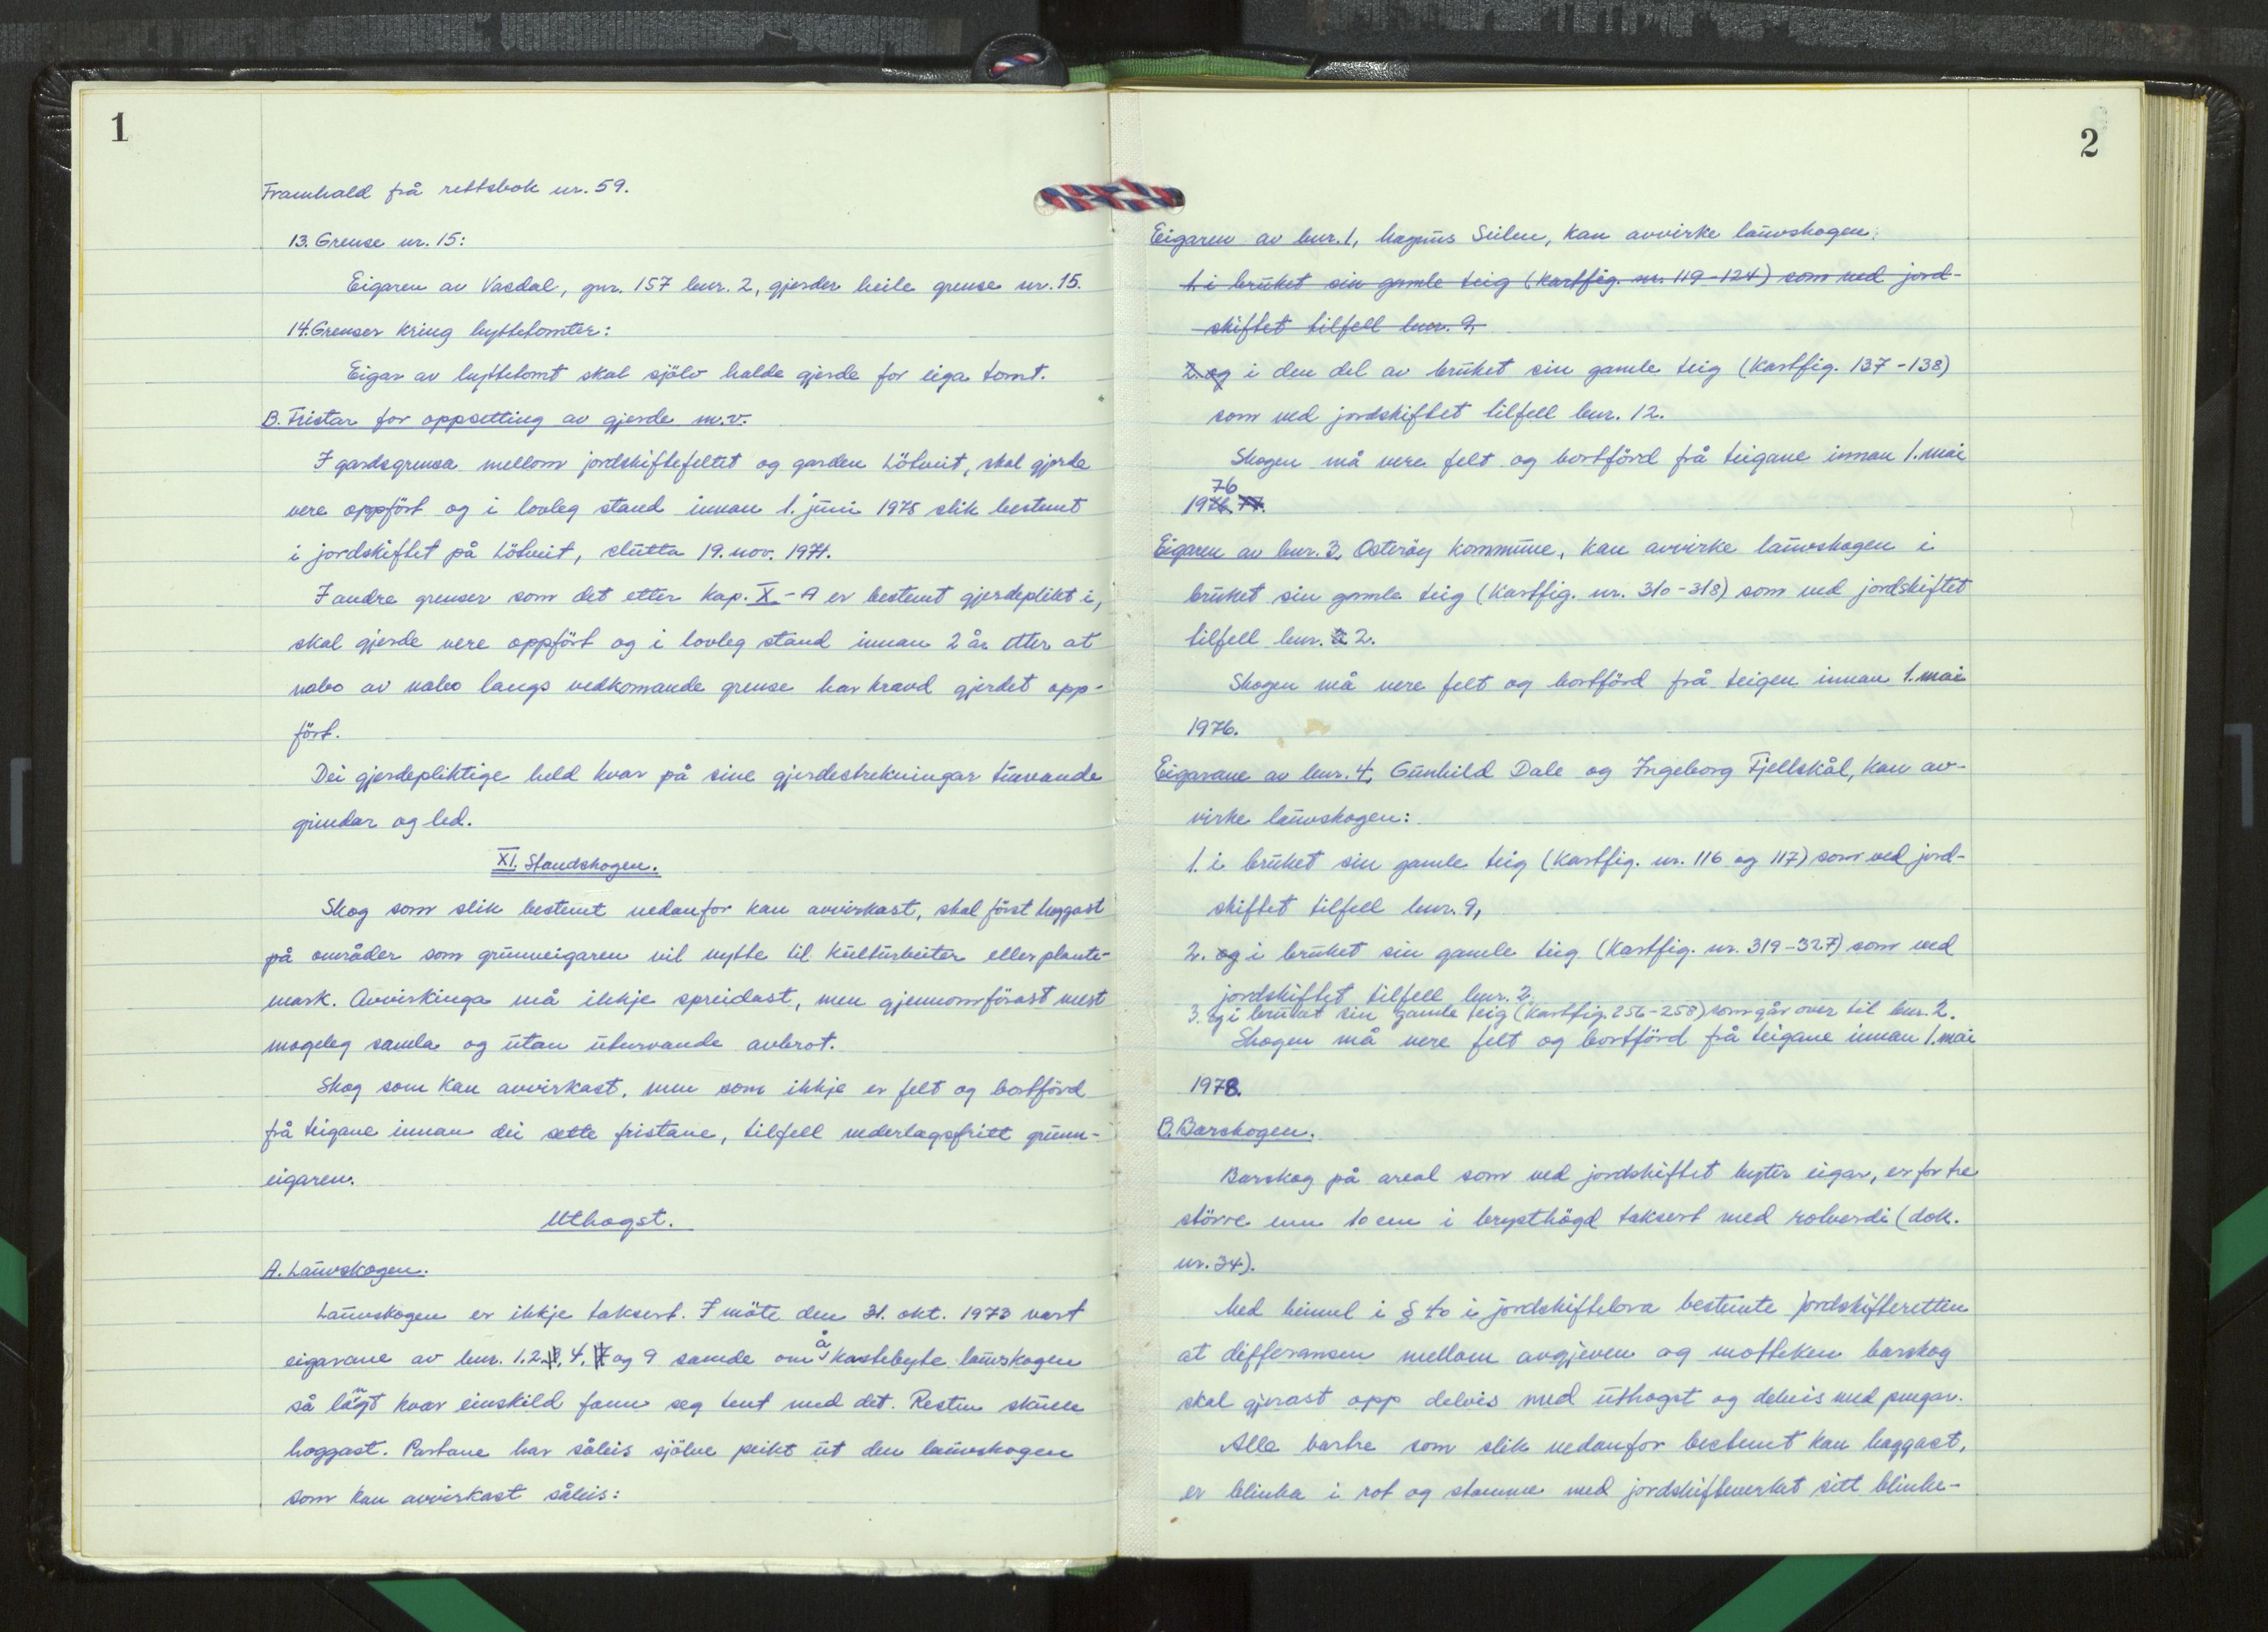 1
Framhald frå rettsbok nr. 59.
13. Grense nr. 15:
Eigaren av Vasdal, gnr. 157 bnr. 2, gjerder heile grense nr. 15.
14. Grenser kring hyttetomter:
Eigar av hyttetomt skal sjölv halde gjerde for eiga tomt.
B. Fristar for oppsetting av gjerde m.v.
I gardsgrensa mellom jordskiftefeltet og garden Lötveit, skal gjerde
vere oppfört og i lovleg stand innan 1. juni 1975 slik bestemt
i jordskiftet på Lötveit, slutta 19. nov. 1971.
I andre grenser som det etter kap. X.-A er bestemt gjerdeplikt i,
skal gjerde vere oppfört og i lovleg stand innan 2 år etter at
nabo av nabo langs vedkomande grense har kravd gjerdet opp-
fört.
Dei gjerdepliktige held kvar på sine gjerdestrekningar turvande
grindar og led.
XI. Standskogen.
Skog som slik bestemt nedanfor kan avvirkast, skal först hoggast
på områder som grunneigaren vil nytte til kulturbeiter eller plante-
mark. Avvirkinga må ikkje spreidast, men gjennomförast mest
mogeleg samla og utan uturvande avbrot.
Skog som kan avvirkast, men som ikkje er felt og bortförd
frå teigane innan dei sette fristane, tilfell vederlagsfritt grunn-
eigaren.
Uthogst.
A. Lauvskogen.
Lauvskogen er ikkje taksert. I möte den 31. okt. 1973 vart
eigarane av bnr. 1, 2, 4, og 9 samde om å kastebyte lauvskogen
så langt kvar einskild fann seg tent med det. Resten skulle
hoggast. Partane har såleis sjölve peikt ut den lauvskogen
som kan avvirkast såleis:
2
Eigaren av bnr. 1, Magnus Seilen, kan avvirke lauvskogen:
1. i bruket sin gamle teig (Kartfig. nr. 119-124) som ved jord-
skiftet tilfell bnr. 9,
2. og i den del av bruket sin gamle teig (Kartfig. 137-138)
som ved jordskiftet tilfell bnr. 12.
Skogen må vere felt og bortförd frå teigane innan 1. mai
1976
Eigaren av bnr. 3, Osteröy kommune, kan avvirke lauvskogen i
bruket sin gamle teig (Kartfig. nr. 310-318) som ved jordskiftet
tilfell bnr. 2.
Skogen må vere felt og bortförd frå teigen innan 1. mai
1976.
Eigarane av bnr. 4, Gunhild Dale og Ingeborg Fjellskål, kan av-
virke lauvskogen:
1. i bruket sin gamle teig (Kartfig. nr. 116 og 117) som ved jord-
skiftet tilfell bnr. 9,
2. og i bruket sin gamle teig (Kartfig. nr. 319-327) som ved
jordskiftet tilfell bnr. 2.
3. og i bruket sin gamle teig (Kartfig. 256-258) som går over til bnr. 2.
Skogen må vere felt og bortförd frå teigane innan 1. mai
1978.
B. Barskogen.
Barskog på areal som ved jordskiftet byter eigar, er for tre
större enn 10 cm i brysthögd taksert med rotverdi (dok.
nr. 34).
Med heimel i § 40 i jordskiftelova bestemte jordskifteretten
at differansen mellom avgjeven og motteken barskog
skal gjerast opp delvis med uthogst og delvis med pengar.
Alle bartre som slik nedanfor bestemt kan hoggast,
er blinka i rot og stamme med jordskifteverket sitt blinke-